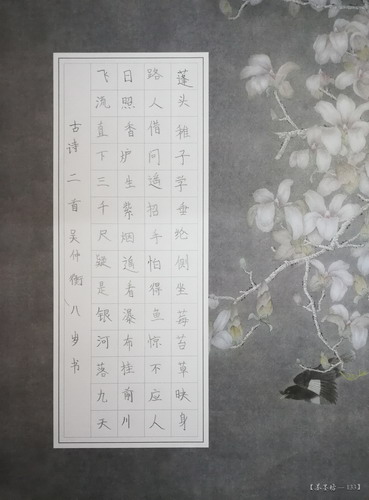 蓬头稚子学垂纶侧坐莓苔草映身
路人借问遥招手怕得鱼惊不应人
日照香炉生紫烟遥看瀑布挂前川
飞流直下三千尺疑是银河落九天
古诗二首吴仲衡八岁书